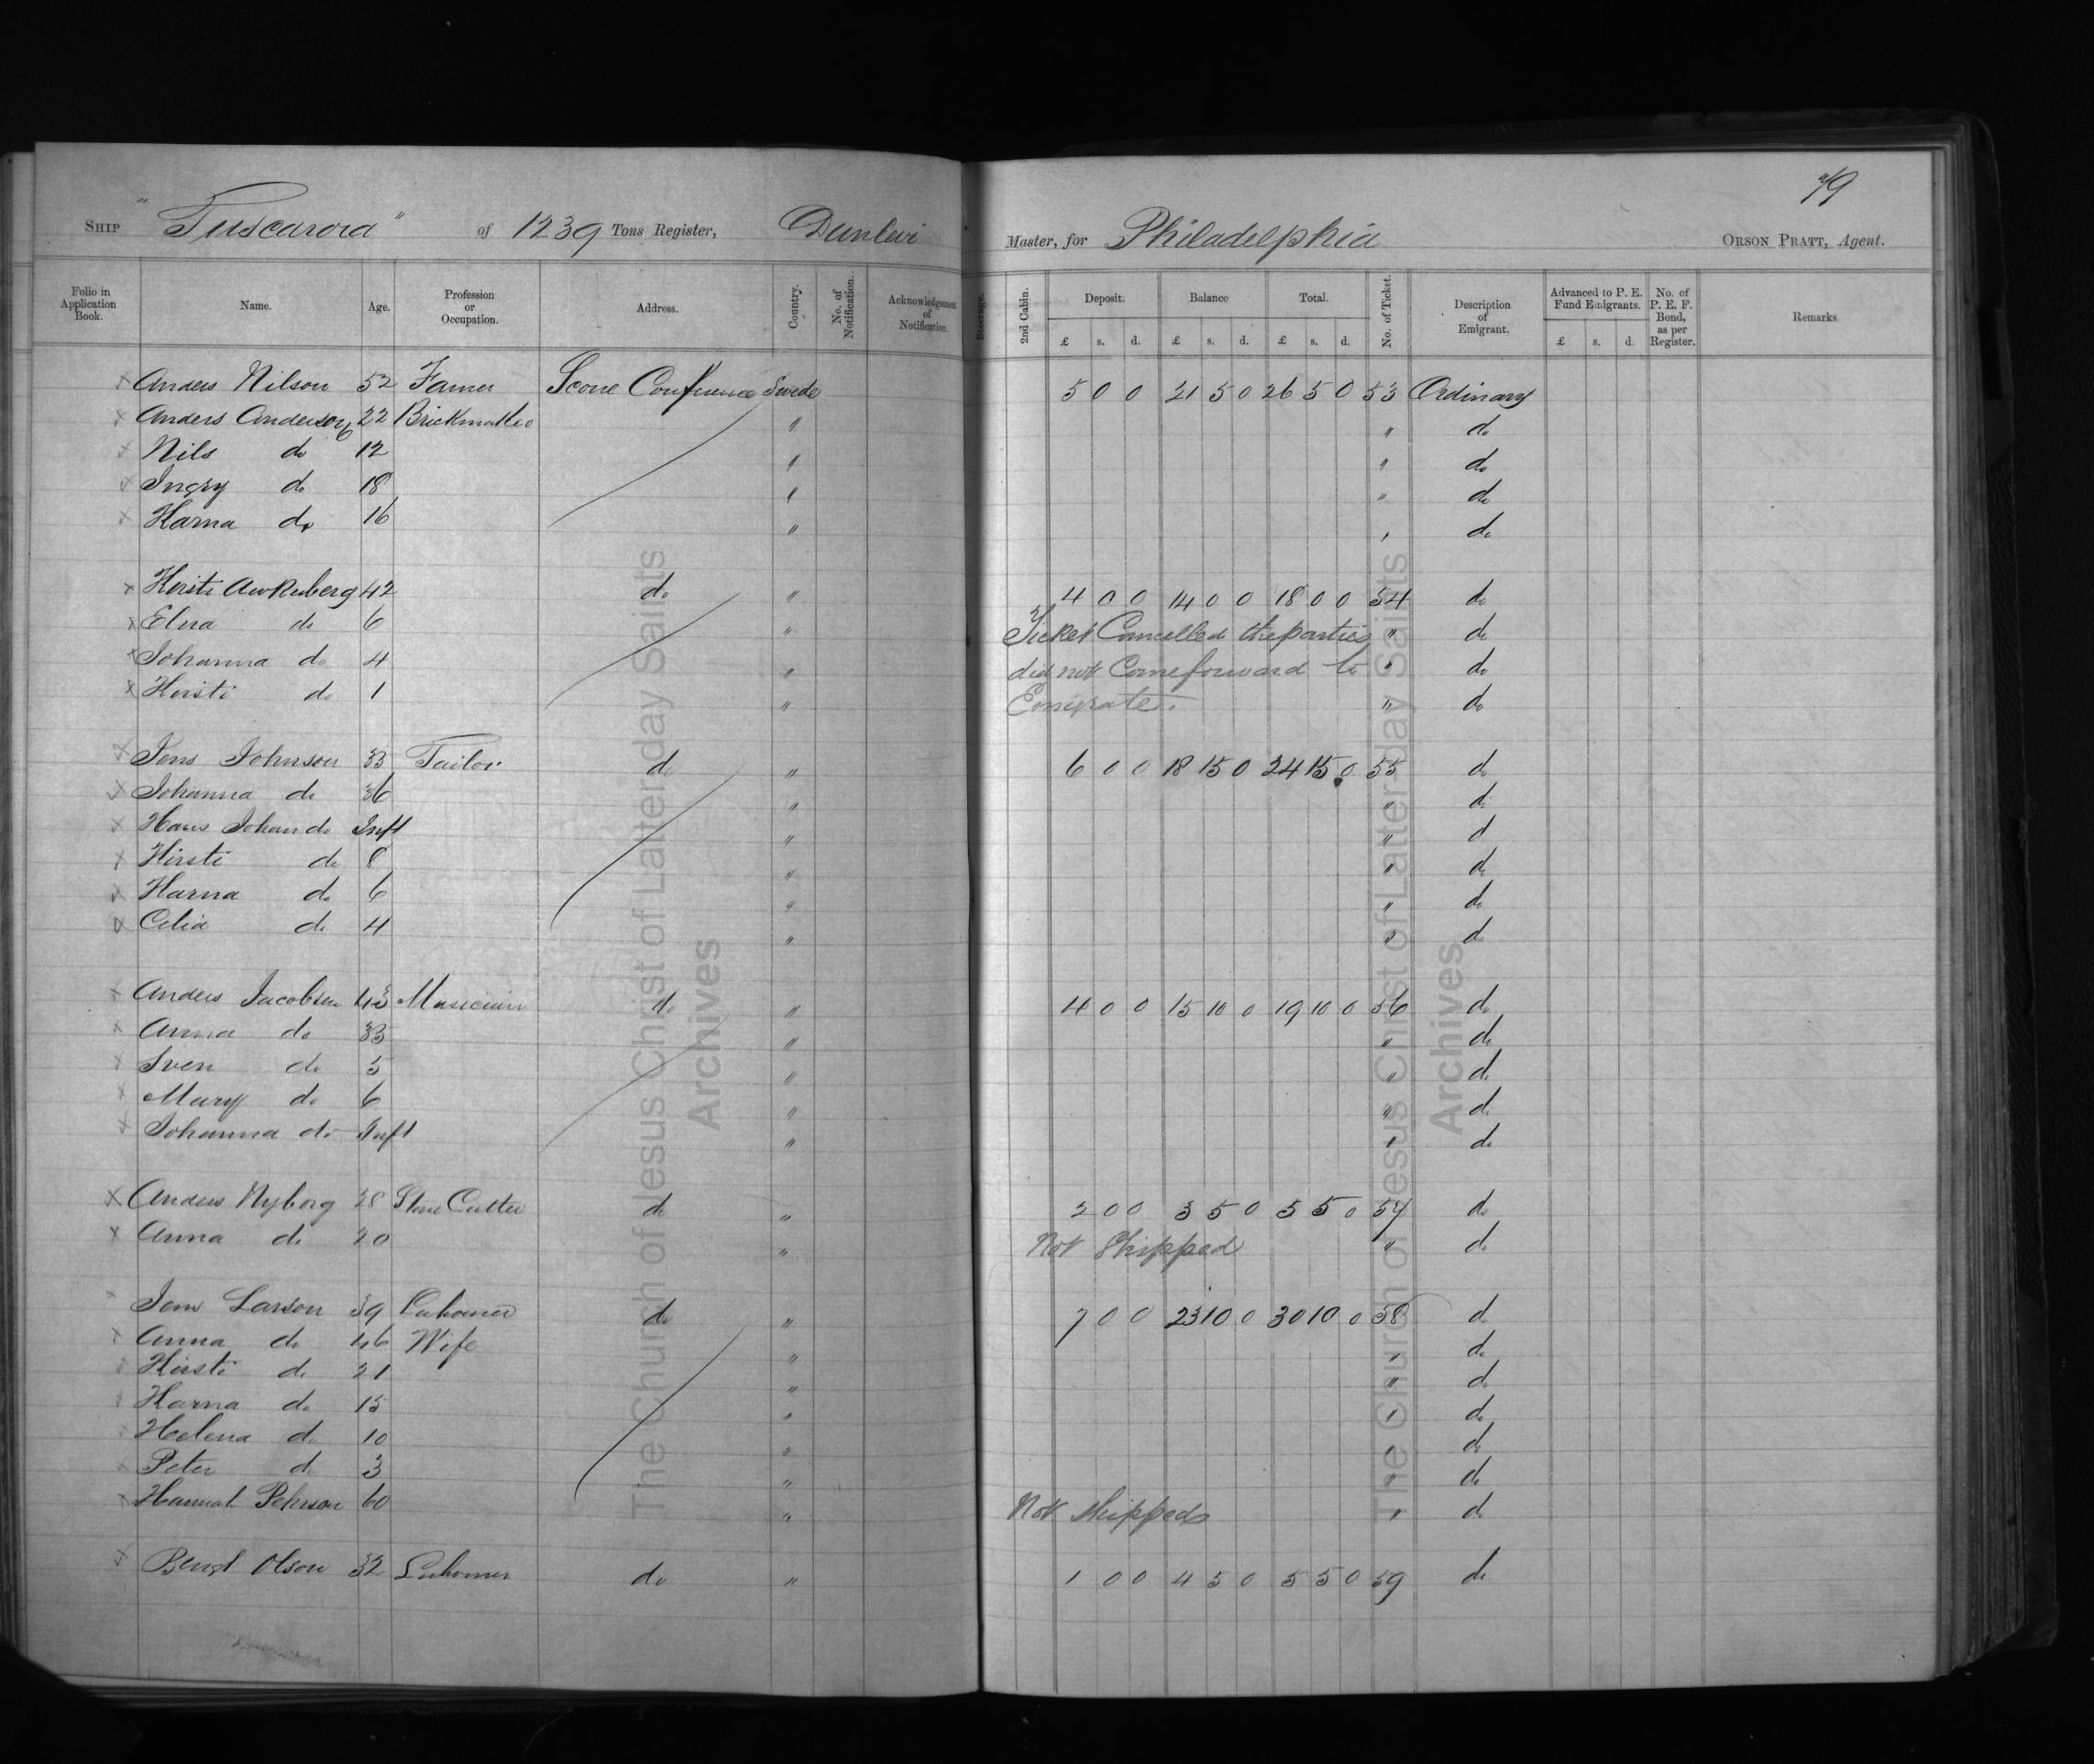 79
SHIP "Tuscarora" of 1239 Tons Register, Dunlevi Master, for Philadelphia ORSON PRATT, Agent.
Folio in Application Book. Name. Age. Profession or Occupation. Address. Country. No. of Notification. Acknowledgement of Notification. Steerage. 2nd Cabin. Deposit. Balance Total. No. of Ticket. Description of Emigrant. Advanced to P. E. Fund Emigrants. No. of P. E. F. Bond, as per Register. Remarks
£ s. d. £ s. d. £ s. d. £ s. d.
x Anders Nilson 52 Famer Scone Conference Swede 5 0 0 21 5 0 26 5 0 53 Ordinary
x Anders Anderson 22 Brickmaker " " do
x Nils do 12 " " do
x Ingry do 18 " " do
x Harna do 16 " " do
x Hersti 42 do " 4 0 0 14 0 0 18 0 0 54 do
x Elna do 6 " Ticket Cancelled the parties " do
x Johanna do 4 " did not Come forward to " do
x Hersti do 1 " Emigrate. " do
x Jens Johnson 33 Tailor do " 6 0 0 18 15 0 24 15 0 55 do
x Johanna do 36 " " do
x Hans Johan do Inft " " d
x Hirsti do 8 " " do
x Harna do 6 " " do
x Celia do 4 " " d
x Anders Jacobsen 43 Musician do " 4 0 0 15 10 0 19 10 0 56 do
x Anna do 33 " " do
x Sven do 5 " " do
x Mary do 6 " " do
x Johanna do Inft " " do
x Anders Nyborg 28 Stone Cutter do " 2 0 0 3 5 0 5 5 0 57 do
x Anna do 20 " Not Shipped " do
x Jens Larson 39 Labourer do " 7 0 0 23 10 0 30 10 0 58 do
x Anna do 46 Wife " " do
x Hirsti do 21 " " do
x Harna do 15 " " do
x Helena do 10 " " do
x Peter do 3 " " do
x Hannah Pehrson 60 " Not Shipped " do
x Bengt Olson 32 Labourer do " 1 0 0 4 5 0 5 5 0 59 do
The Church of Jesus Christ of Latter day Saints Archives
The Church of Jesus Christ of Latter day Saints Archives